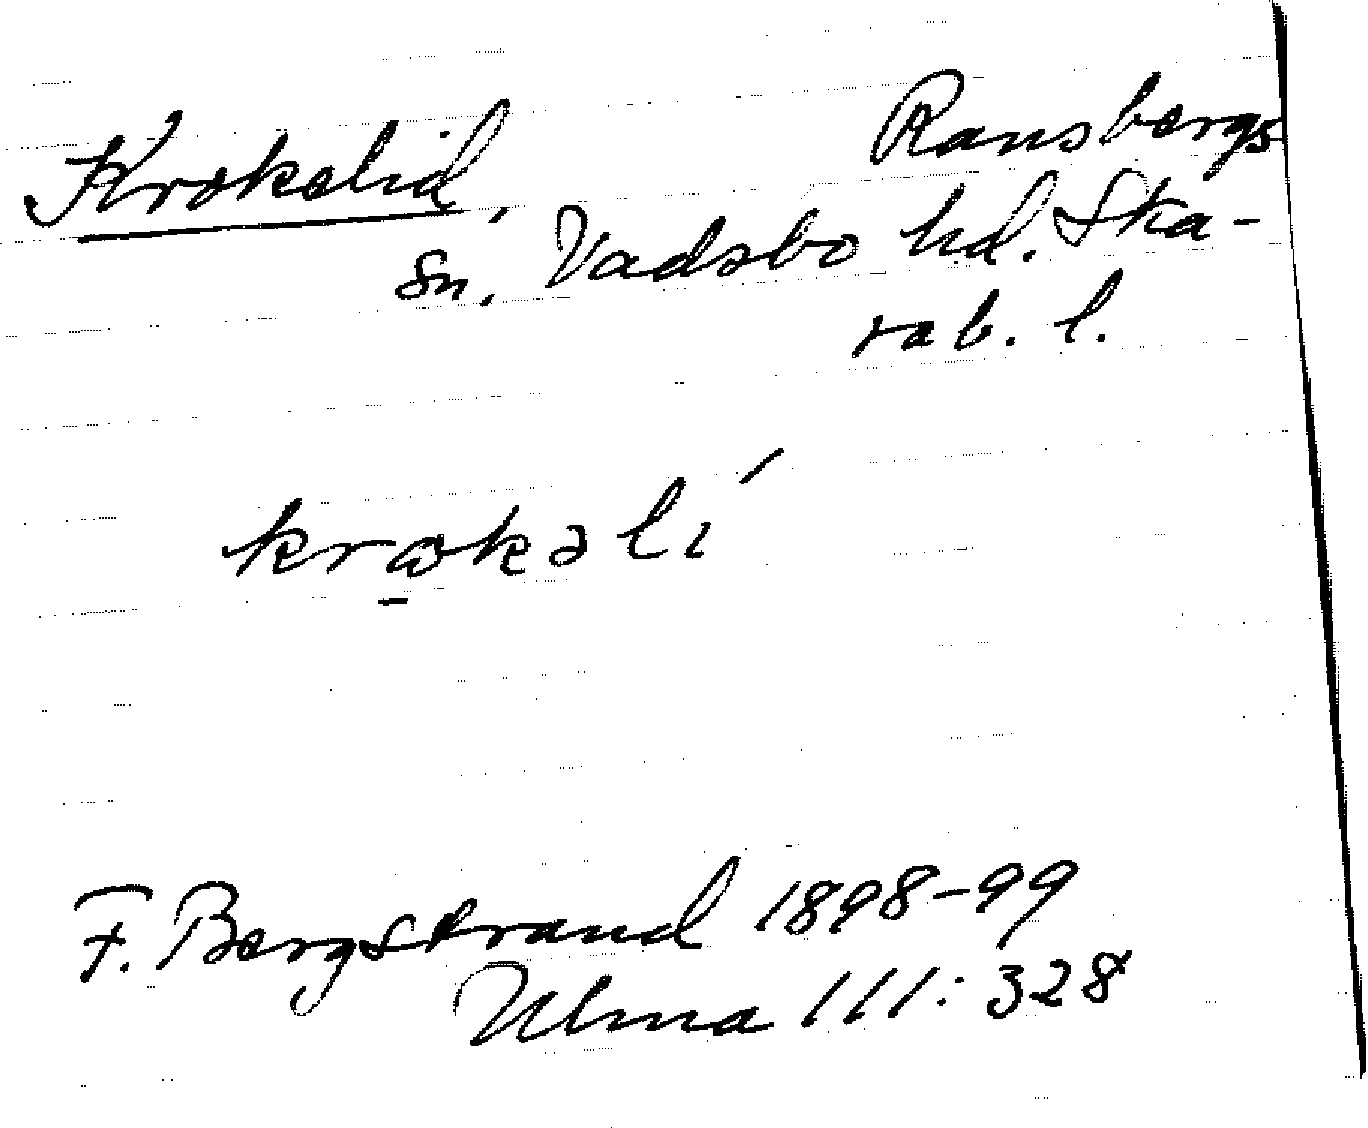 Krokelid, Ransbergs
sn. Vadsbo hd. Ska-
rab. l.
krɷkəlí
F. Bergstrand 1898-99
Ulma 111:328